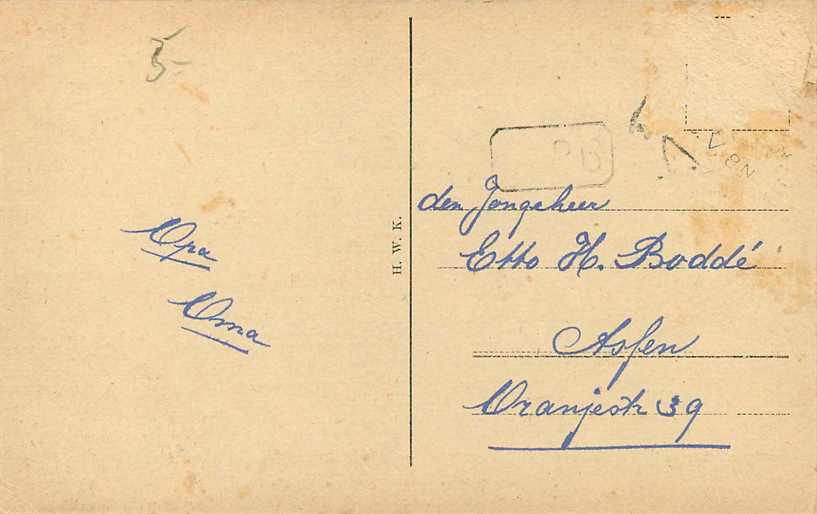 5-
Opa
Oma
H. W. K.
den Jongeheer
Etto H. Boddé
Assen
Oranjestr 39